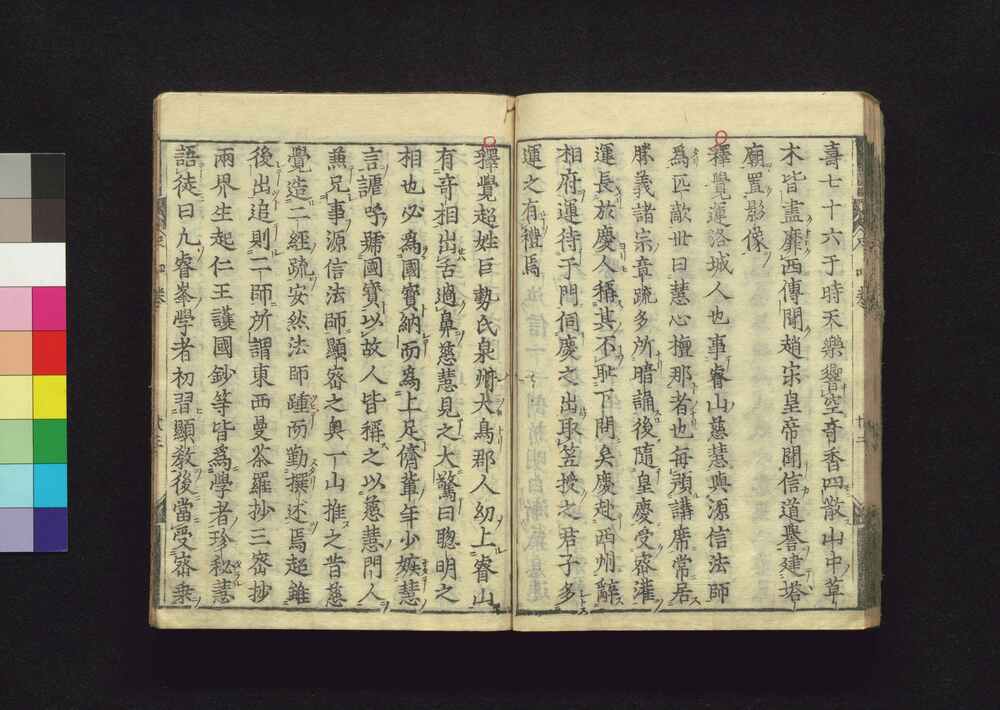 壽七十六于時天樂響空奇香四散山中草
木皆盡靡西傳聞趙宋皇帝聞信道譽建塔
廟置影像
釋覺運洛城人也事睿山慈慧與源信法師
爲匹敵世曰慧心檀那者也毎預講席常居
勝義諸宗章疏多所暗誦後隨皇慶受密灌
運長於慶人稱其不恥下問矣慶赴西州辭
相府運待于門伺慶之出取笠授之君子多
運之有禮焉
釋覺超姓巨勢氏泉州大鳥郡人幼上睿山
有奇相出舌過鼻慈慧見之大驚曰聰明之
相也必爲國寶納而爲上足儕輩年少嫉慧
言謔呼號國寶以故人皆稱之以慈慧門人
兼兄事源信法師顯密之奧一山推之昔慈
覺造二經疏安然法師踵而勤撰述焉超雖
後出追則二師所謂東西曼荼羅抄三密抄
兩界生起仁王護國鈔等皆爲學者珍秘慧
語徒曰九睿峯學者初習顯教後當受密乘